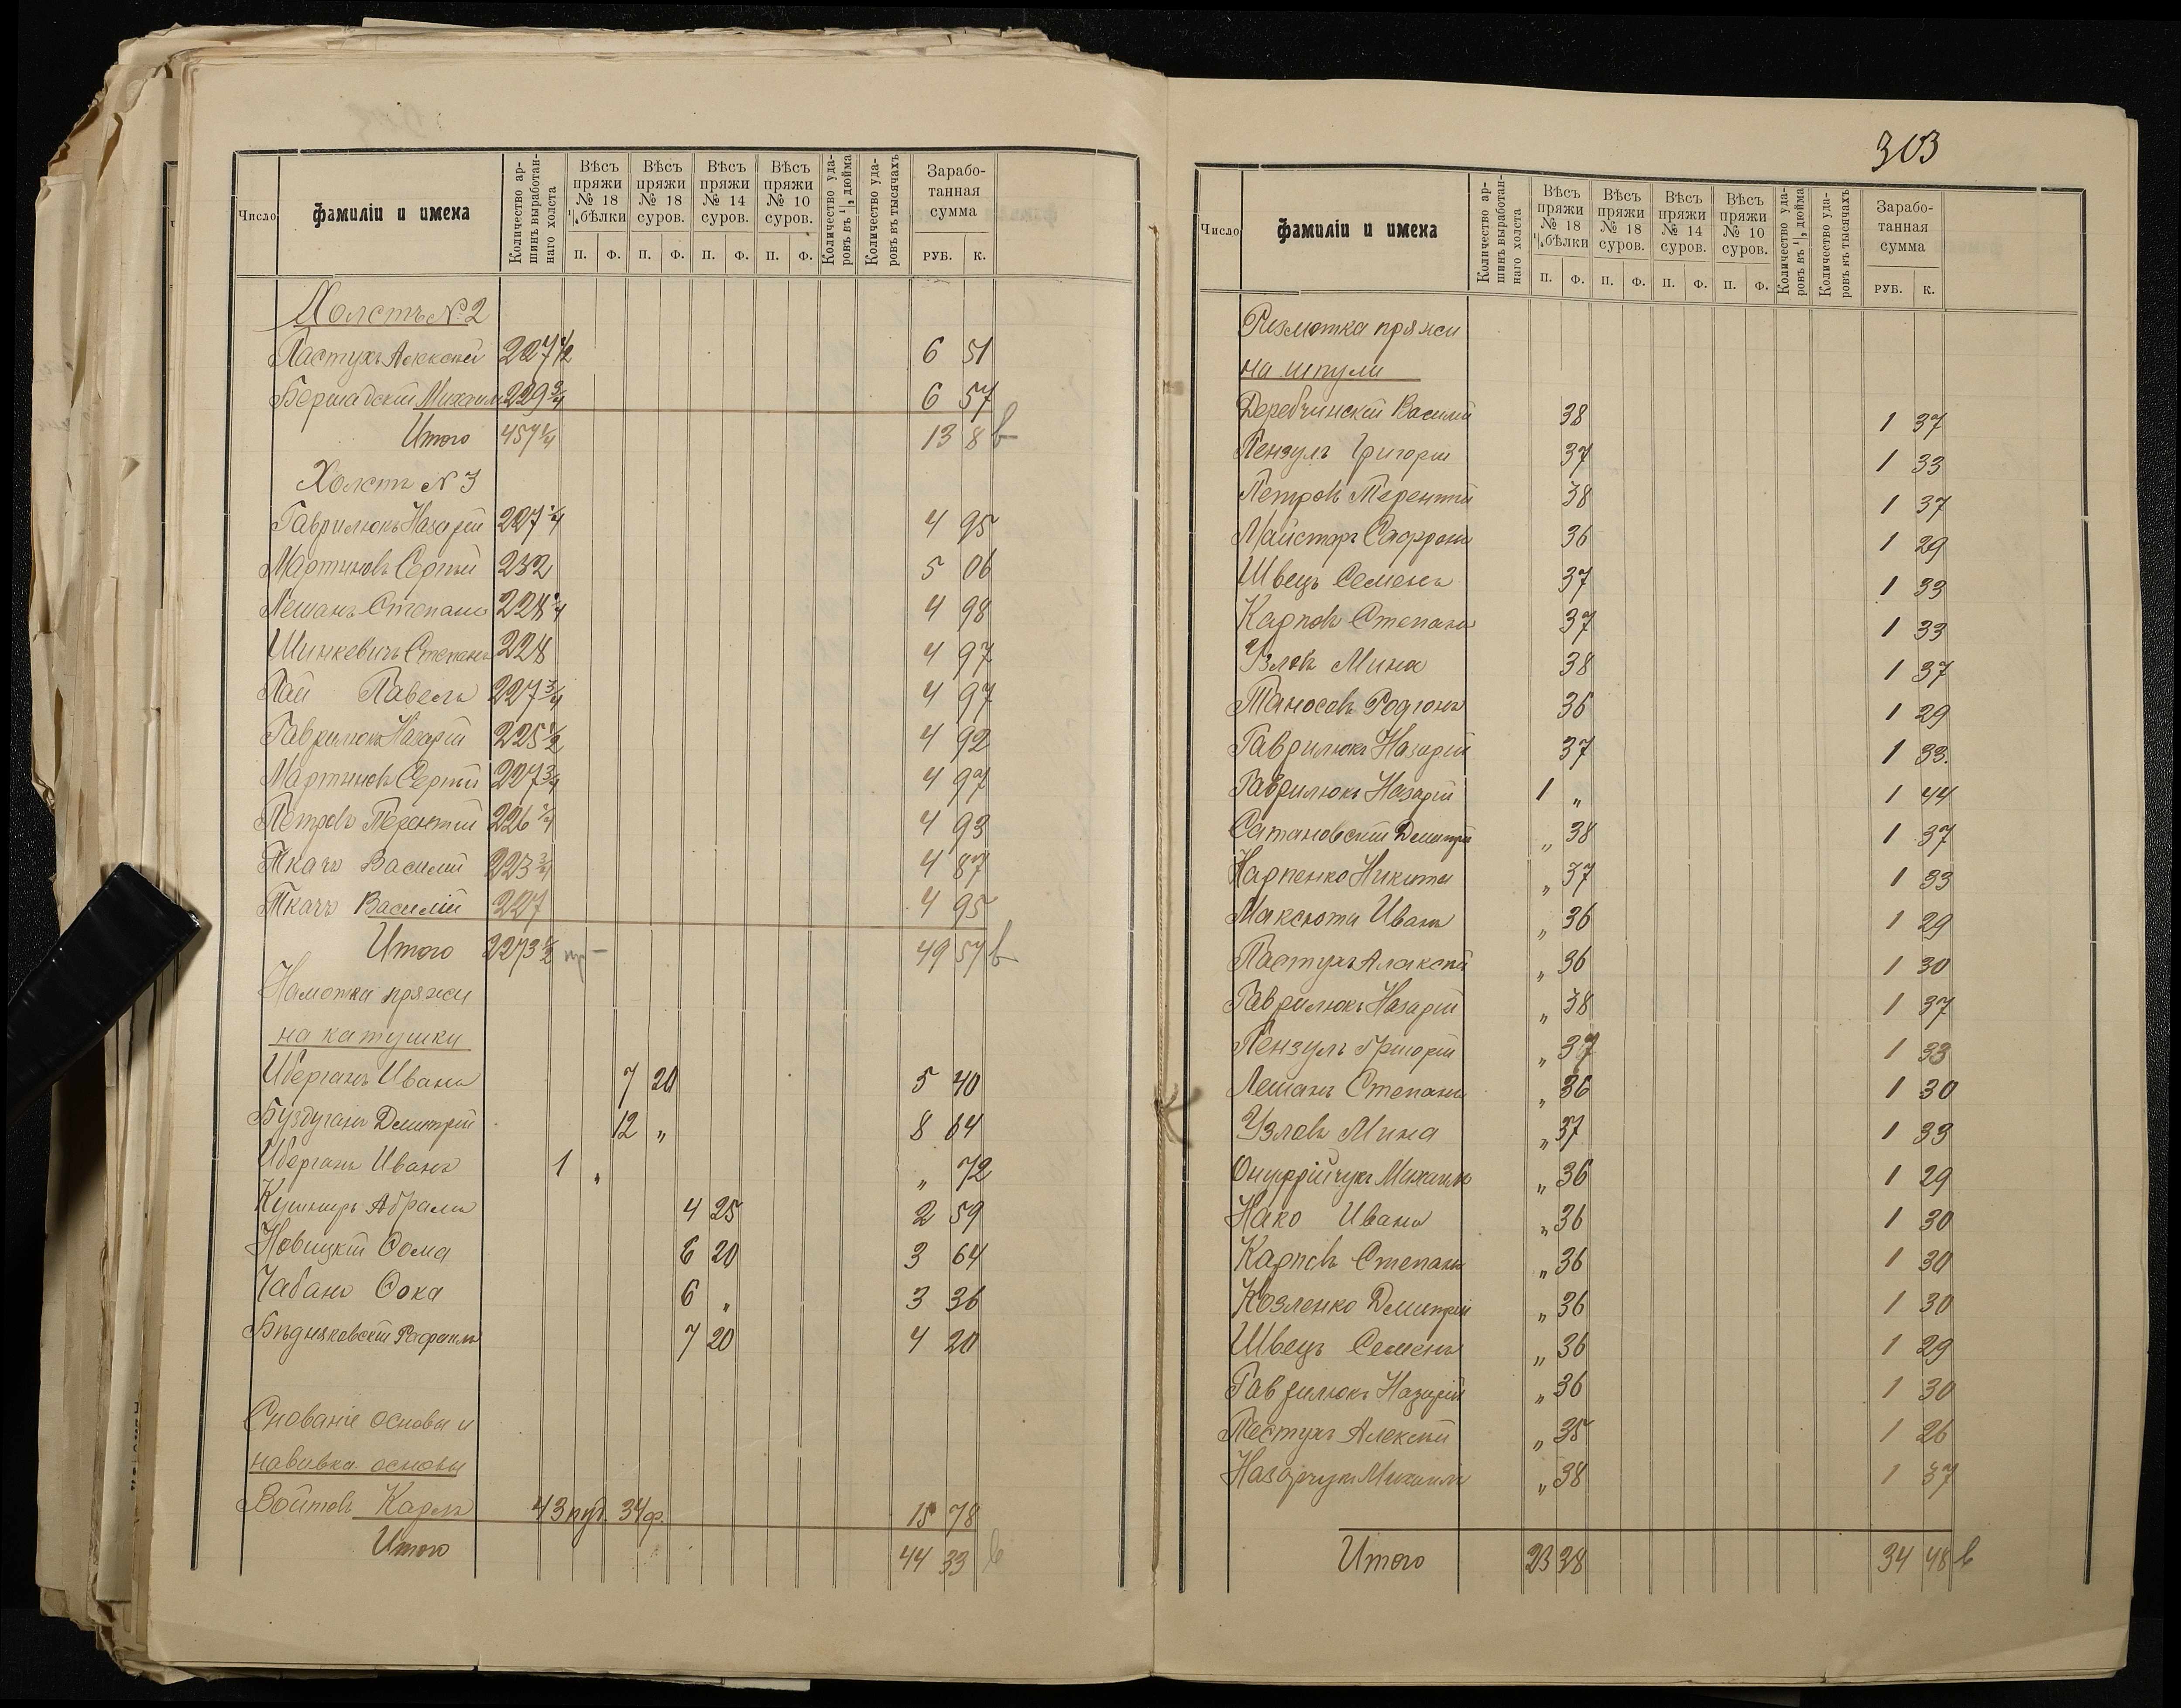 Число
фамиліи и имена
Количество ар-
шинъ выработан-
наго холста
Вѣсъ пряжи № 18 ½ бѣлки П. Ф.
Вѣсъ пряжи № 18 суров. П. Ф.
Вѣсъ пряжи № 14 суров. П. Ф.
Вѣсъ пряжи № 10 суров. П. Ф.
Количество уда-
ровъ въ ¼ дюйма
Количество уда-
ровъ въ тысячахъ
Зарабо-
танная
сумма
РУБ. К.
Холстъ № 2
Пастухъ Алексѣй 227 ½ 6 51
Бершадскій Михаилъ 229 ¾ 6 57
Итого 457 ¼ 13 8
Холстъ № 3
Гаврилюкъ Назарій 227 ¼ 4 95
Мартыновъ Сергѣй 232 5 06
Лешанъ Степанъ 228 ¼ 4 98
Шинкевичъ Степанъ 228 4 97
Пай Павелъ 227 ¾ 4 97
Гаврилюкъ Назарій 225 ½ 4 92
Мартыновъ Сергѣй 227 ¾ 4 97
Петровъ Терентій 226 ¼ 4 93
Ткачъ Василій 223 ¾ 4 87
Ткачъ Василій 227 4 95
Итого 2273 ½ 49 57
Намотка пряжи
на катушку
Ибергалъ Иванъ 7 20 5 40
Буздуганъ Дмитрій 12 „ 8 64
Ибергалъ Иванъ 1 „ „ 72
Кушниръ Абрамъ 4 25 2 59
Новицкій Ѳома 6 20 3 64
Чабанъ Ѳока 6 „ 3 36
Бѣдняковскій Рафаилъ 7 20 4 20
Снованіе основы и
навивка основы
Войтовъ Карлъ 43 пуд. 34 ф. 15 78
Итого 44 33
303
Число
фамиліи и имена
Количество ар-
шинъ выработан-
наго холста
Вѣсъ пряжи № 18 ½ бѣлки П. Ф.
Вѣсъ пряжи № 18 суров. П. Ф.
Вѣсъ пряжи № 14 суров. П. Ф.
Вѣсъ пряжи № 10 суров. П. Ф.
Количество уда-
ровъ въ ¼ дюйма
Количество уда-
ровъ въ тысячахъ
Зарабо-
танная
сумма
РУБ. К.
Размотка пряжи
на шпули
Деребчинскій Василій 38 1 37
Пензулъ Григорій 37 1 33
Петровъ Терентій 38 1 37
Майстаръ Сафронъ 36 1 29
Швецъ Семенъ 37 1 33
Карповъ Степанъ 37 1 33
Узловъ Мина 38 1 37
Таносовъ Родіонъ 36 1 29
Гаврилюкъ Назарій 37 1 33
Гаврилюкъ Назарій 1 „ 1 44
Сатановскій Дмитрій „ 38 1 37
Карпенко Никита „ 37 1 33
Максюта Иванъ „ 36 1 29
Пастухъ Алексѣй „ 36 1 30
Гаврилюкъ Назарій „ 38 1 37
Пензулъ Григорій „ 37 1 33
Лешанъ Степанъ „ 36 1 30
Узловъ Мина „ 37 1 33
Онуфрійчукъ Михаилъ „ 36 1 29
Нако Иванъ „ 36 1 30
Карповъ Степанъ „ 36 1 30
Козленко Дмитрій „ 36 1 30
Швецъ Семенъ „ 36 1 29
Гаврилюкъ Назарій „ 36 1 30
Пастухъ Алексѣй „ 35 1 26
Назарчукъ Михаилъ „ 38 1 37
Итого 23 38 34 48